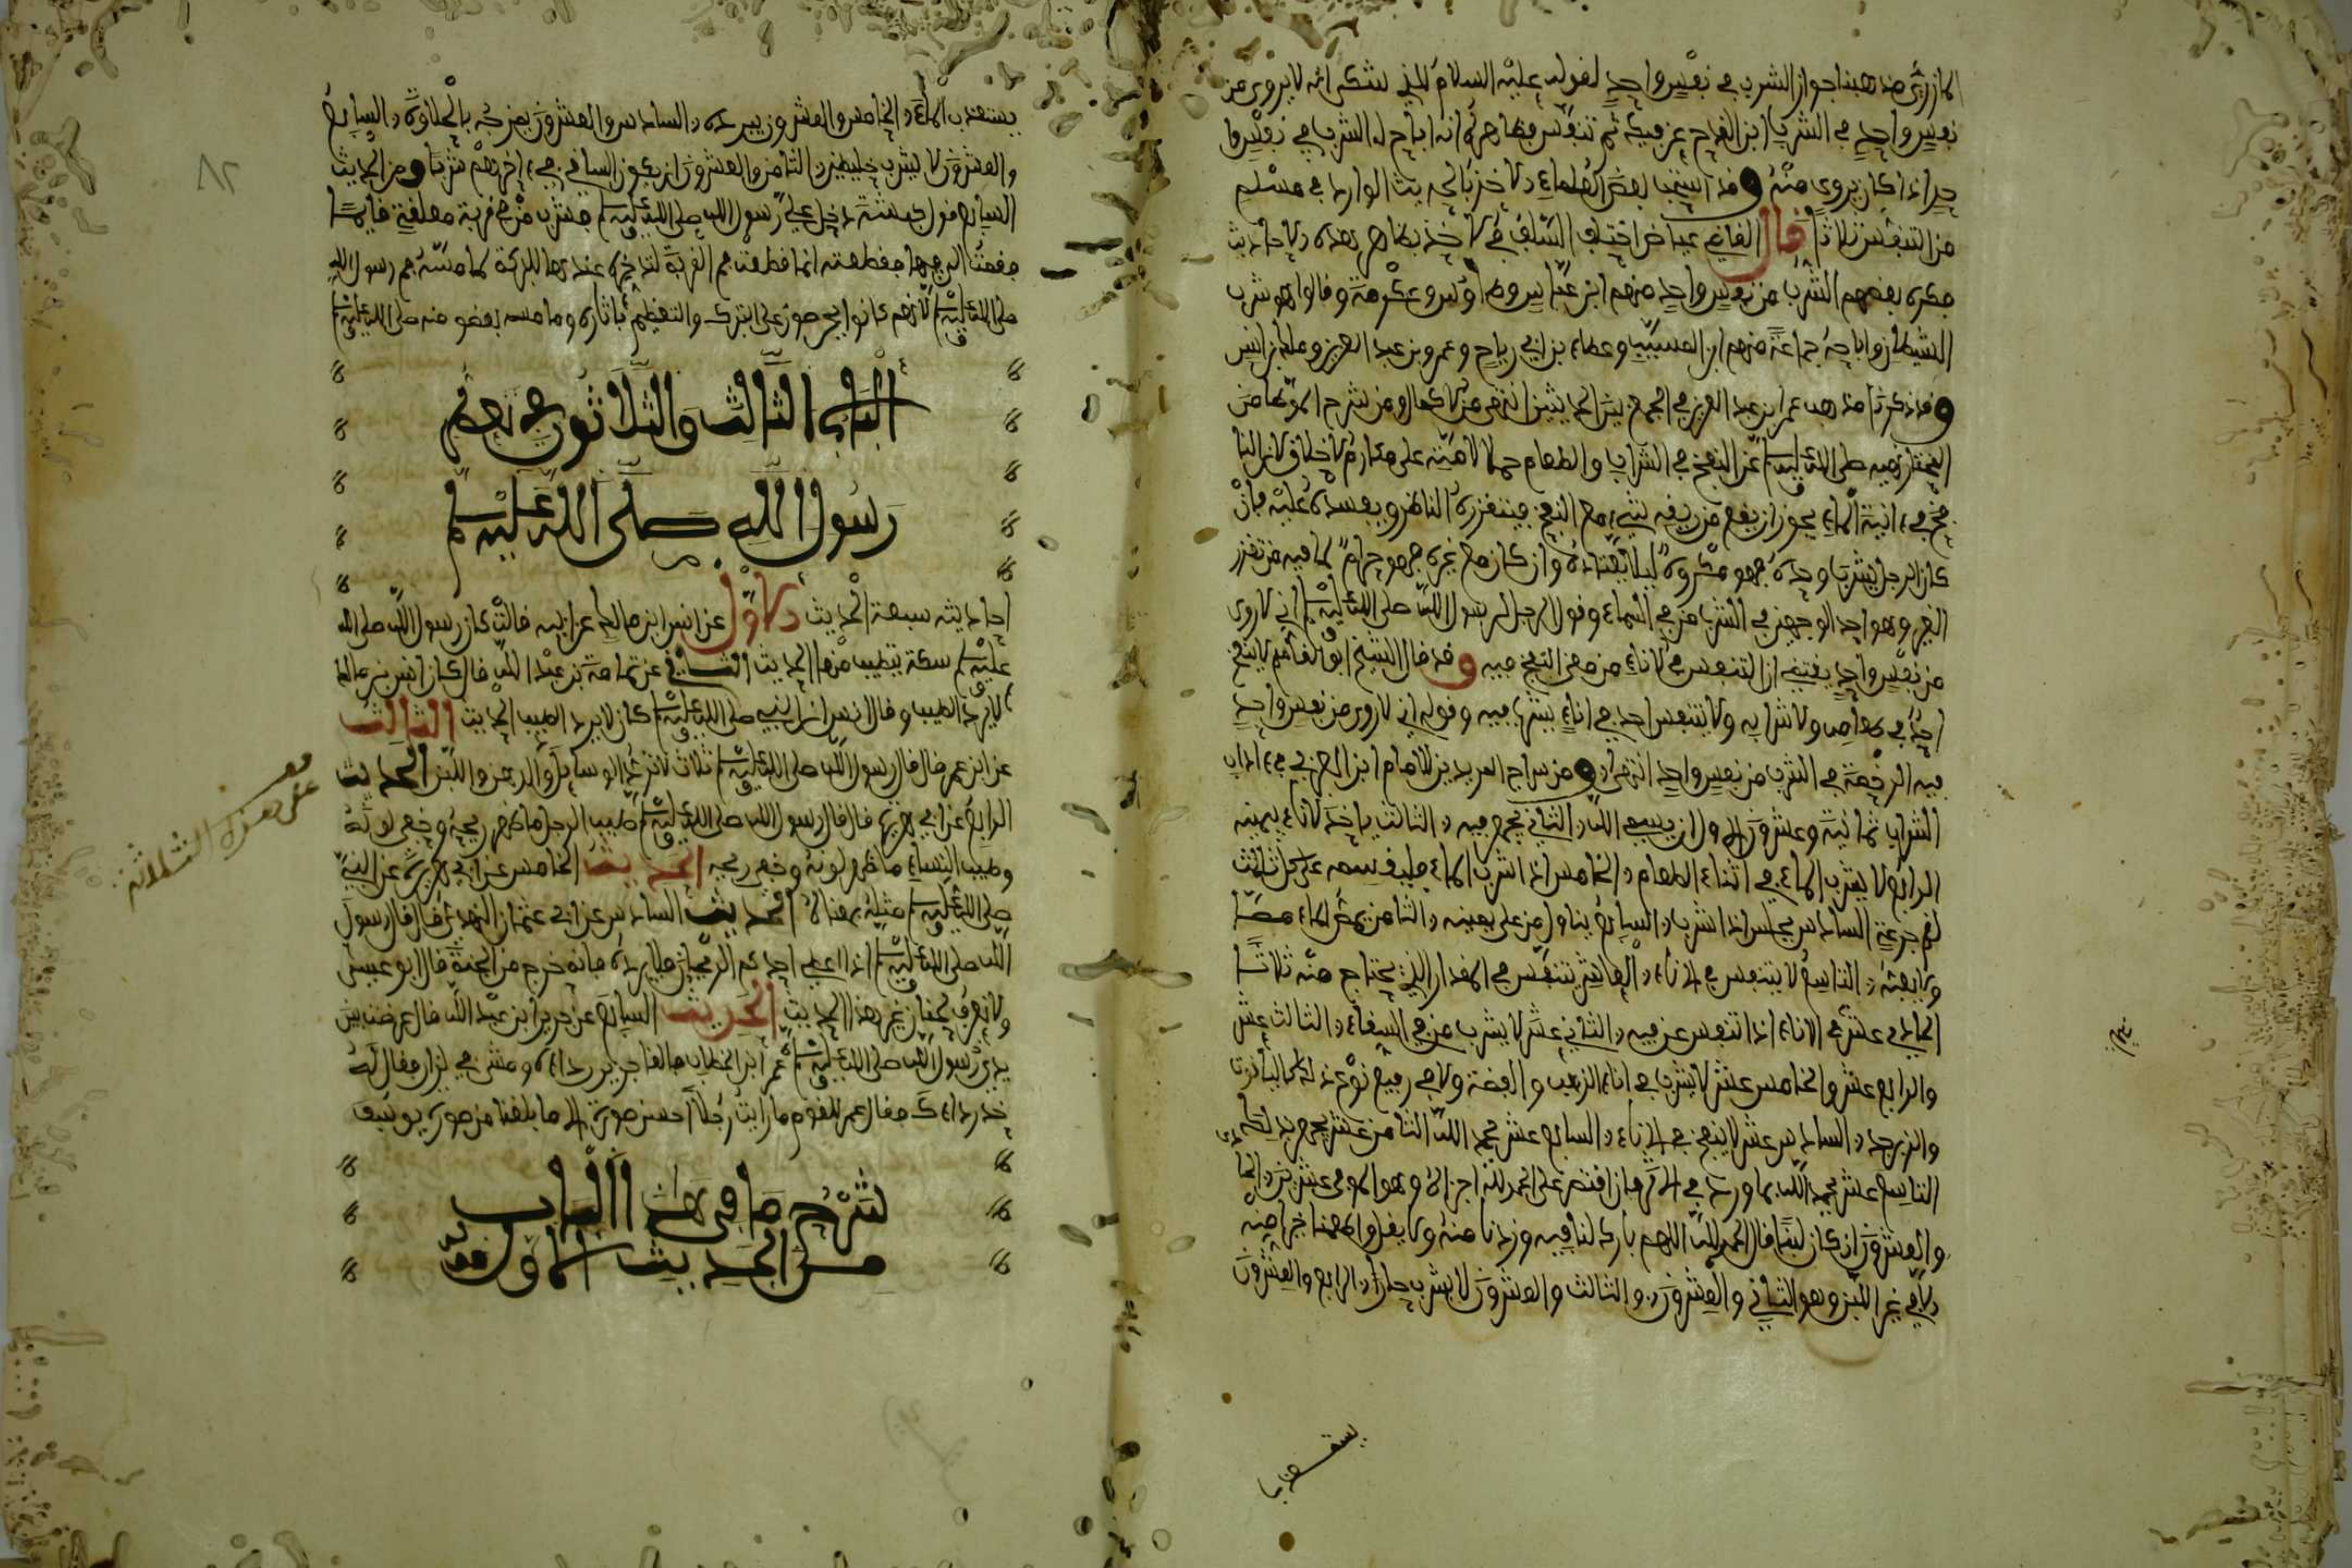 المازري مذهبنا جواز الشرب في نفس واحد لقوله عليه السلام للذي شكى انه لا يروى من
نفس واحد في الشرب ابن القدح عن فيك ثم تنفس فظاهره انه اباح له الشرب في نفس
واحد اذا كان يروى منه وقد استحب بعض العلماء الاخذ بالحديث الوارد في مسلم
من التنفس ثلاثا قال القاضي عياض اختلف السلف في الاخذ بظاهر هذه الاحاديث
فكره بعضهم الشرب من نفس واحد منهم ابن عباس وطاوس وعكرمة وقالوا هو شرب
الشيطان واباحه جماعة منهم ابن المسيب وعطاء بن ابي رباح وعمر بن عبد العزيز ومالك بن انس
وقد ذكرنا مذهب عمر بن عبد العزيز في الجمع بين الحديثين انتهى من الاكمال ومن شرح الموطا من
المختار نهيه صلى الله عليه وسلم عن النفخ في الشراب والطعام حملا لامته على مكارم الاخلاق لان النا
فخ في انية الماء يجوز ان يقع من ريقه شيء مع النفخ فيتقززه الناظر ويفسده عليه فان
كان الرجل يشرب وحده فهو مكروه ليلا يعتاده وان كان مع غيره فهو حرام لما فيه من تقزز
الغير وهو احد الوجهين في الشرب من في السقاء وقول الرجل لرسول الله صلى الله عليه وسلم اني لا اروى
من نفس واحد يقتضي ان التنفس في الاناء من معنى النفخ فيه وقد قال الشيخ ابو القاسم لا ينفخ
احد في طعامه ولا شرابه ولا يتنفس احد في اناء يشرب فيه وقوله اني لا اروى من نفس واحد
فيه الرخصة في الشرب من نفس واحد انتهى ومن سراج المريدين للامام ابن العربي في اداب
الشراب ثمانية وعشرون الاول ان يسمي الله الثاني يجمع فيه الثالث ياخذ الاناء بيمينه
الرابع لا يشرب الماء في اثناء الطعام الخامس اذا شرب الماء فليقسمه على ثلاث
السادس يجلس اذا شرب السابع يناول من على يمينه الثامن يمص الماء مصا
ولا يعبه التاسع لا يتنفس في الاناء العاشر يتنفس في المقدار الذي يحتاج منه ثلاثا
الحادي عشر في الاناء اذا تنفس عن فيه الثاني عشر لا يشرب من في السقاء الثالث عشر
والرابع عشر والخامس عشر لا يشرب في اناء الذهب والفضة ولا في رفيع نوعه كالياقوت
والزبرجد السادس عشر لا ينفخ في الاناء السابع عشر يحمد الله الثامن عشر
التاسع عشر يحمد الله بما ورد في الاثر فان اقتصر على الحمد لله اجزاه وهو الموفي عشرين الحا
والعشرون ان كان لبنا قال الحمد لله اللهم بارك لنا فيه وزدنا منه ولا يقل واطعمنا خيرا منه
الا في غير اللبن وهو الثاني والعشرون والثالث والعشرون لا يشرب حارا الرابع والعشرون
يستعذب الماء الخامس والعشرون يبرده السادس والعشرون يمزجه بالحلاوة السابع
والعشرون لا يشرب خليطين الثامن والعشرون ان يكون الساقي في اخرهم شربا ومن الحديث
السابع قول كبشة دخل علي رسول الله صلى الله عليه وسلم فشرب من في قربة معلقة قايما
فقمت الى فيها فقطعته انما قطعت فم القربة لتدخره عندها للبركة لما مسه فم رسول الله
صلى الله عليه وسلم لانهم كانوا يحرصون على التبرك والتعظيم باثاره وما مسه بعضو منه صلى الله عليه وسلم
الباب الثالث والثلاثون في تعطر
رسول الله صلى الله عليه وسلم
احاديثه سبعة الحديث الاول عن انس ابن مالك عن ابيه قالت كان رسول الله صلى الله
عليه وسلم سكة يتطيب منها الحديث الثاني عن ثمامة بن عبد الله قال كان انس بن مالك
لا يرد الطيب وقال انس ان النبي صلى الله عليه وسلم كان لا يرد الطيب الحديث الثالث
عن ابن عمر قال قال رسول الله صلى الله عليه وسلم ثلاث لا ترد الوسايد والدهن واللبن الحديث
الرابع عن ابي هريرة قال قال رسول الله صلى الله عليه وسلم طيب الرجل ما ظهر ريحه وخفي لونه
وطيب النساء ما ظهر لونه وخفي ريحه الحديث الخامس عن ابي هريرة عن النبي
صلى الله عليه وسلم مثله بمعناه الحديث السادس عن ابي عثمان النهدي قال قال رسول
الله صلى الله عليه وسلم اذا اعطي احدكم الريحان فلا يرده فانه خرج من الجنة قال ابو عيسى
ولا نعرف لحنان غير هذا الحديث الحديث السابع عن جرير ابن عبد الله قال عرضت بين
يدي رسول الله صلى الله عليه وسلم عمر ابن الخطاب فالقى جرير رداءه ومشى في ازار فقال له
خذ رداءك فقال عمر للقوم ما رايت رجلا احسن صورة الا ما بلغنا من صورة يوسف
شرح ما في هذا الباب
من الحديث الاول قوله